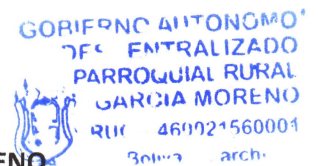 GOBIERNO AUTONOMO
DES ENTRALIZADO
PARROQUIAL RURAL
GARCIA MORENO
RUC 460021560001
ENO